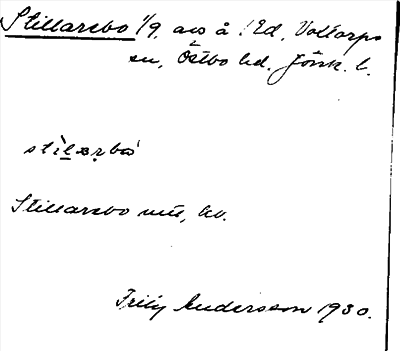 Stillarsbo 1/9, avs å Ed, Voltorps
sn, Östbo hd. Jönk. l.
stìlarbo
Stillarsbo
Fritz Andersson 1930.